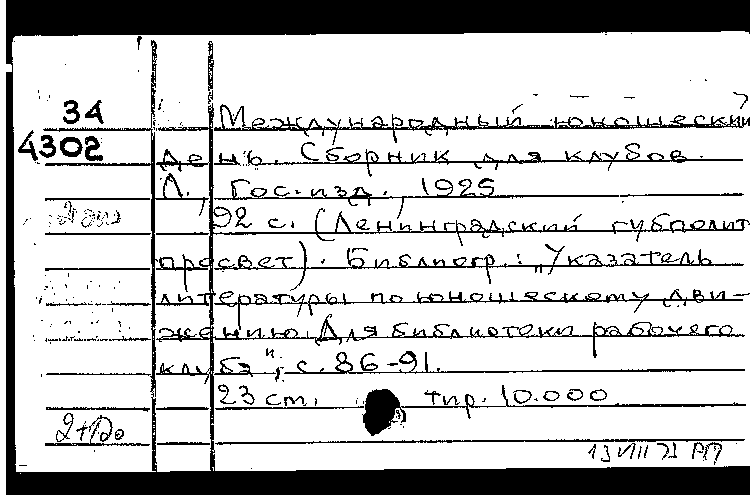 34
4302
Международный юношеский
день. Сборник для клубов.
Л., Гос. изд., 1925
92 с. (Ленинградский губполит
просвет). Библиогр.: „Указатель
литературы по юношескому дви-
жению. Для библиотеки рабочего
клуба", с. 86-91.
23 cm. тир. 10.000
13 VIII 71 РП